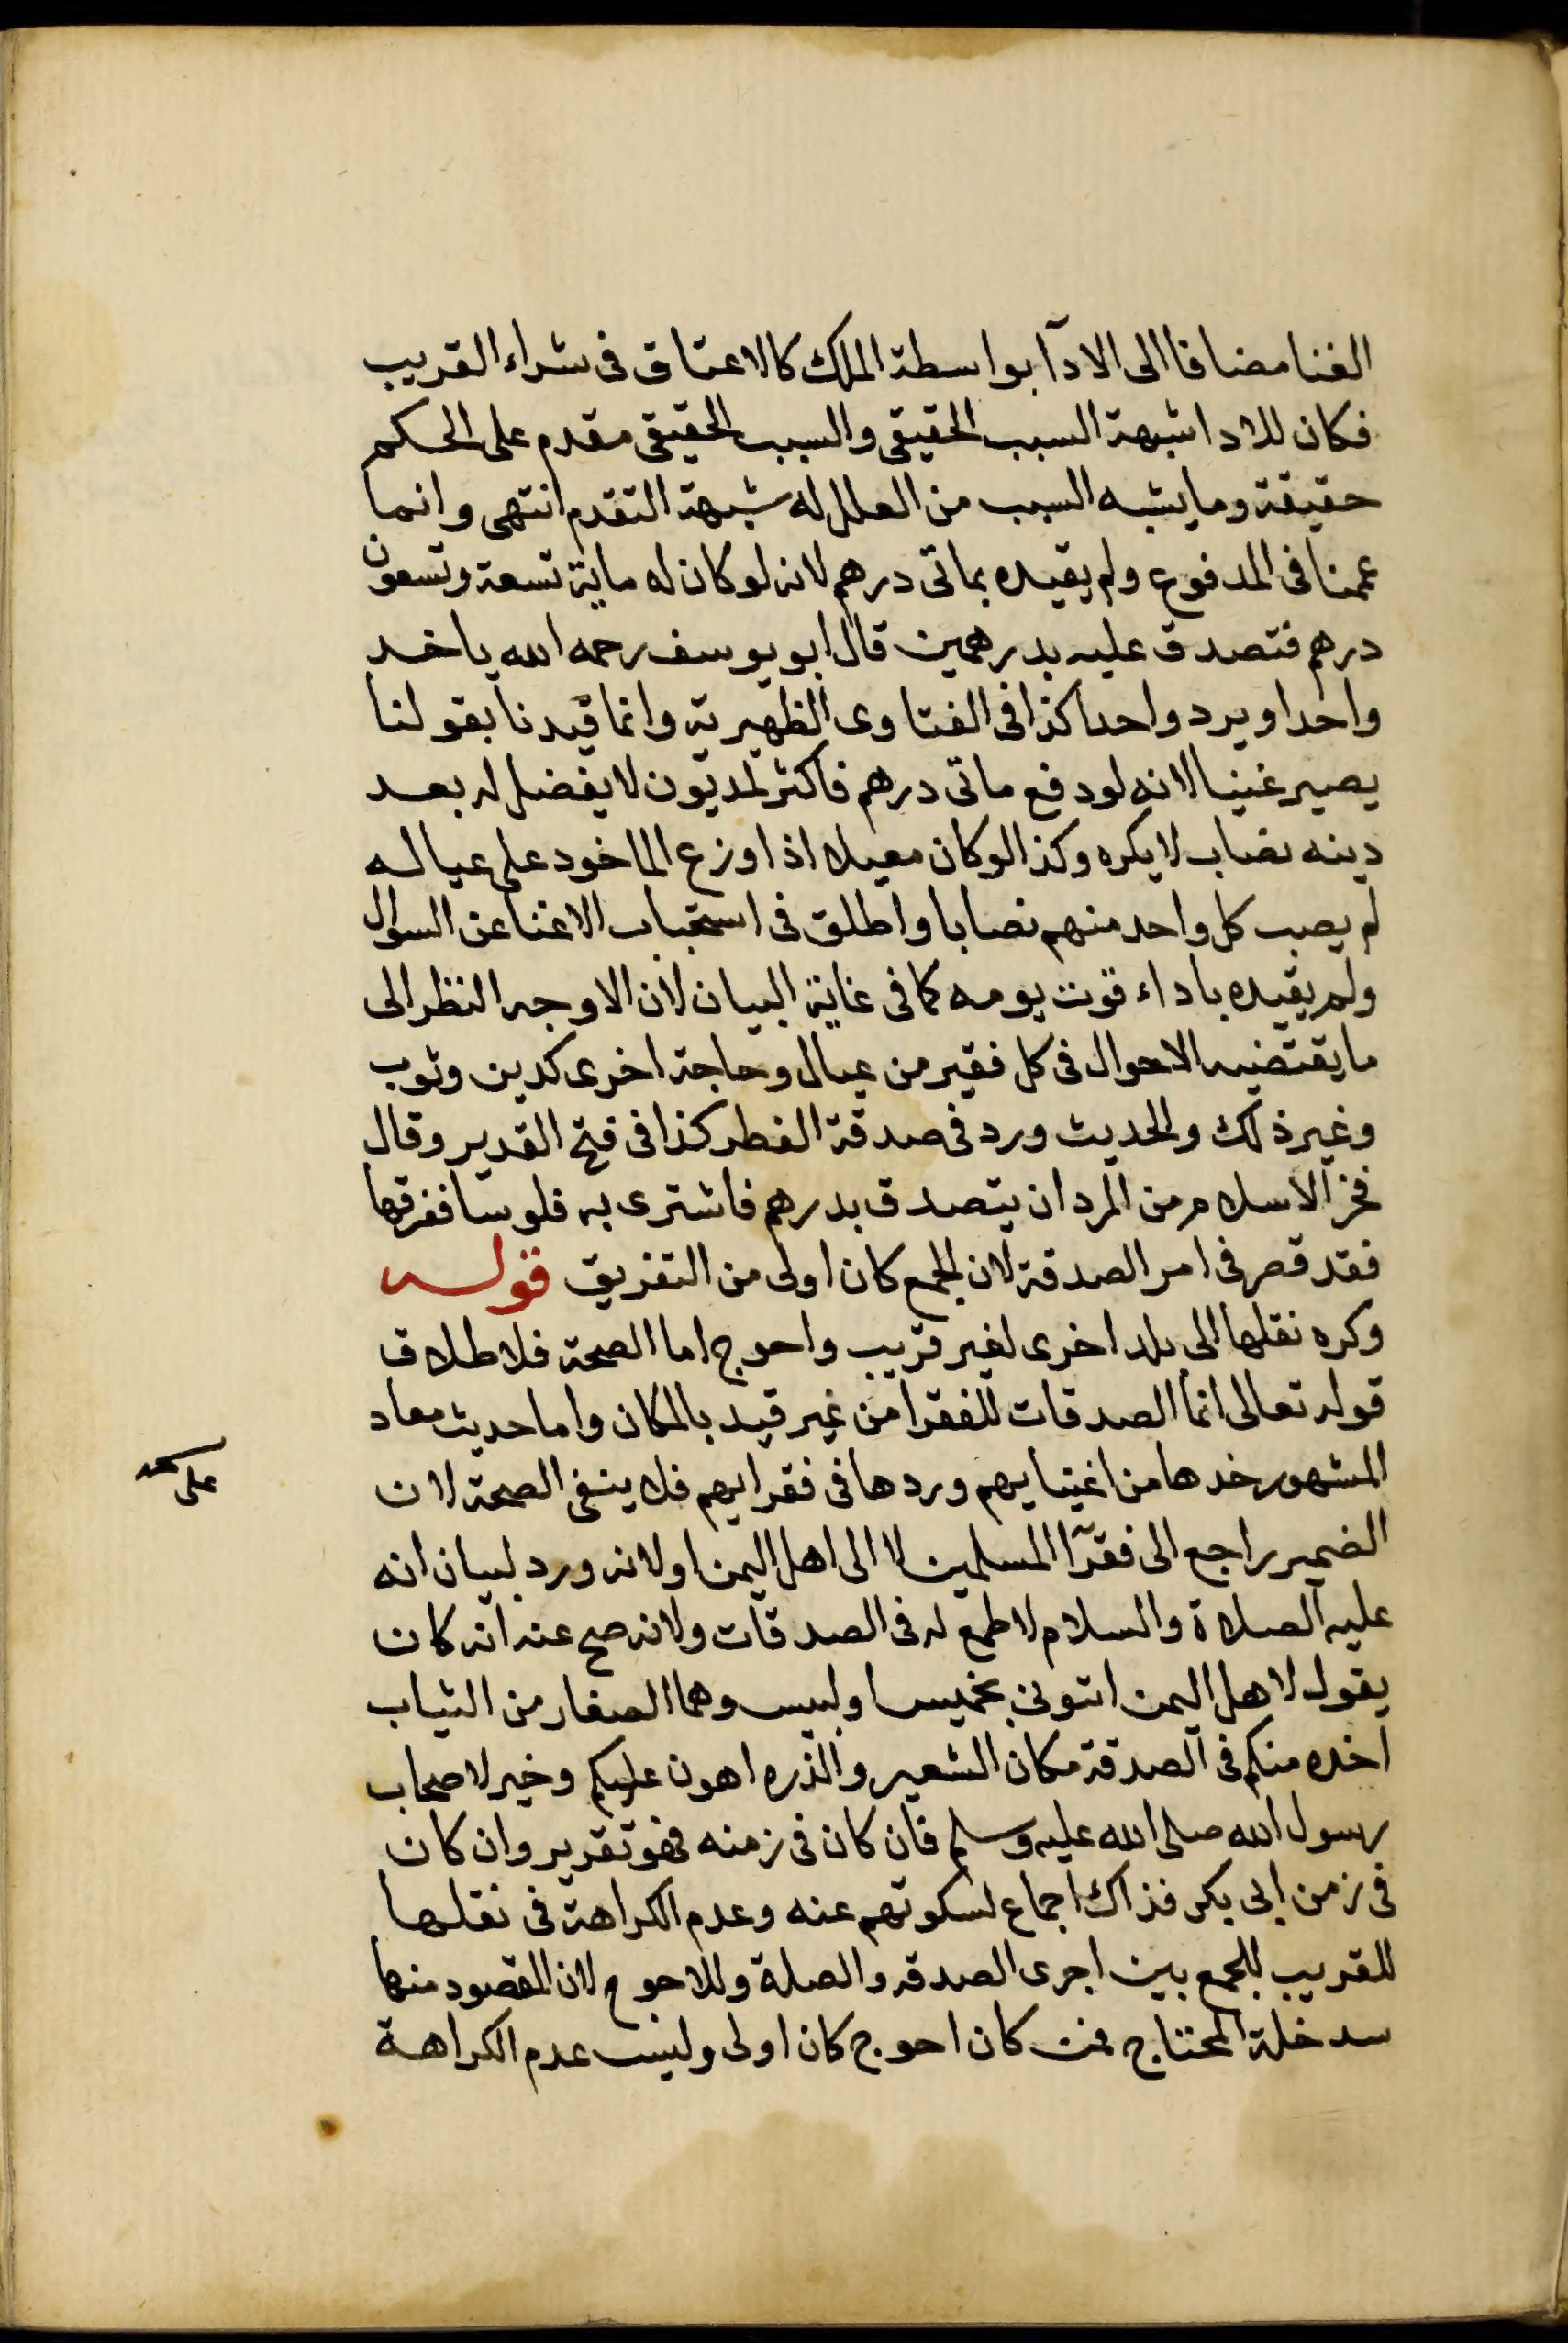 الغنا مضافا الى الادآ بواسطة الملك كالاعتاق فى شراء القريب
فكان للادا شبهة السبب الحقيقى والسبب الحقيقى مقدم على الحكم
حقيقة وما يشبه السبب من العلل له شبهة التقدم انتهى وانما
عممنا فى المدفوع ولم يقيده بماتى درهم لانه لو كان له ماية تسعة وتسعون
درهم فتصدق عليه بدرهمين قال ابو يوسف رحمه الله ياخد
واحدا ويرد واحدا كذا فى الفتاوى الظهيرية وانما قيدنا بقولنا
يصير غنيا لانه لو دفع ماتى درهم فاكثر لمديون لا يفضل له بعد
دينه نصاب لا يكره وكذا لو كان معيلا اذا وزع الماخود على عياله
لم يصب كل واحد منهم نصابا واطلق فى استحباب الاغنا عن السوال
ولم يقيده باداء قوت يومه كما فى غاية البيان لان الاوجه النظر الى
ما يقتضيه الاحوال فى كل فقير من عيال وحاجة اخرى كدين وثوب
وغير ذلك والحديث ورد فى صدقة الفطر كذا فى فتح القدير وقال
فخر الاسلام من اراد ان يتصدق بدرهم فاشترى به فلوسا ففرقها
فقد قصر فى امر الصدقة لان الجمع كان اولى من التفريق قوله
وكره نقلها الى بلد اخرى لغير قريب واحوج اما الصحة فلاطلاق
قوله تعالى انما الصدقات للفقرا من غير قيد بالمكان واما حديث معاد
المشهور خدها من اغنيايهم وردها فى فقرايهم فلا ينفى الصحة لان
الضمير راجع الى فقرآ المسلمين لا الى اهل اليمن او لانه ورد لبيان انه
عليه الصلاة والسلام لا طمع له فى الصدقات ولانه صح عنه انه كان
يقول لاهل اليمن ايتونى بخميس او لبيس وهما الصغار من الثياب
اخده منكم فى الصدقة مكان الشعير والذره اهون عليكم وخير لاصحاب
رسول الله صلى الله عليه وسلم فان كان فى زمنه فهو تقرير وان كان
فى زمن ابى بكر فذاك اجماع لسكوتهم عنه وعدم الكراهة فى نقلها
للقريب للجمع بين اجرى الصدقه والصلة وللاحوج لان المقصود منها
سد خلة المحتاج فمن كان احوج كان اولى وليس عدم الكراهة